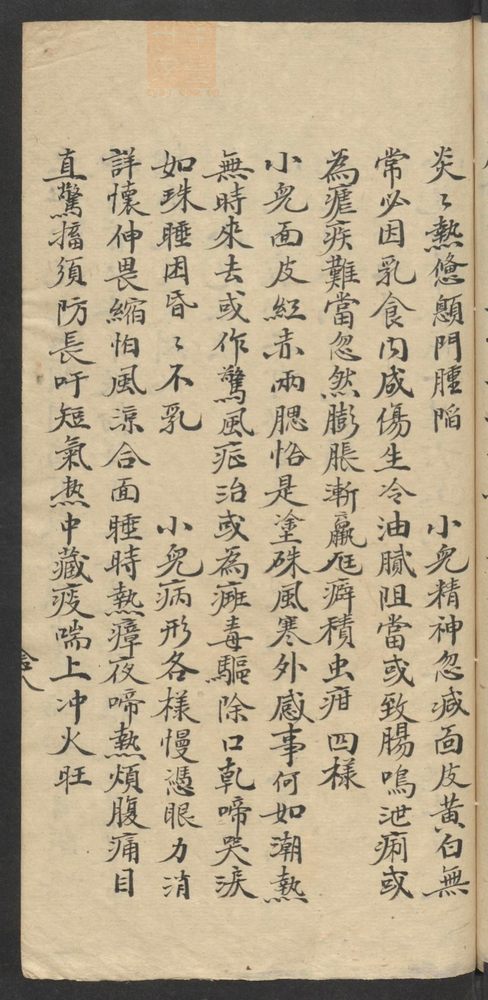 炎〻熱倦顖門腫陷　小兒精神忽减面皮黃白無
常必因乳食内成傷生冷油膩阻當或致腸鳴泄痢或
為瘧疾難當忽然膨脹漸羸尫癖積虫疳四樣
小兒面皮紅赤兩腮恰是塗硃風寒外感事何如潮熱
無時來去或作驚風症治或為痲毒驅除口乾啼哭淚
如珠睡困昏〻不乳　小兒病形各樣慢憑眼力消
詳懷伸畏縮怕風涼合面睡時熱瘴夜啼熱煩腹痛目
直驚搐須防長吁短氣熱中藏痰喘上冲火旺